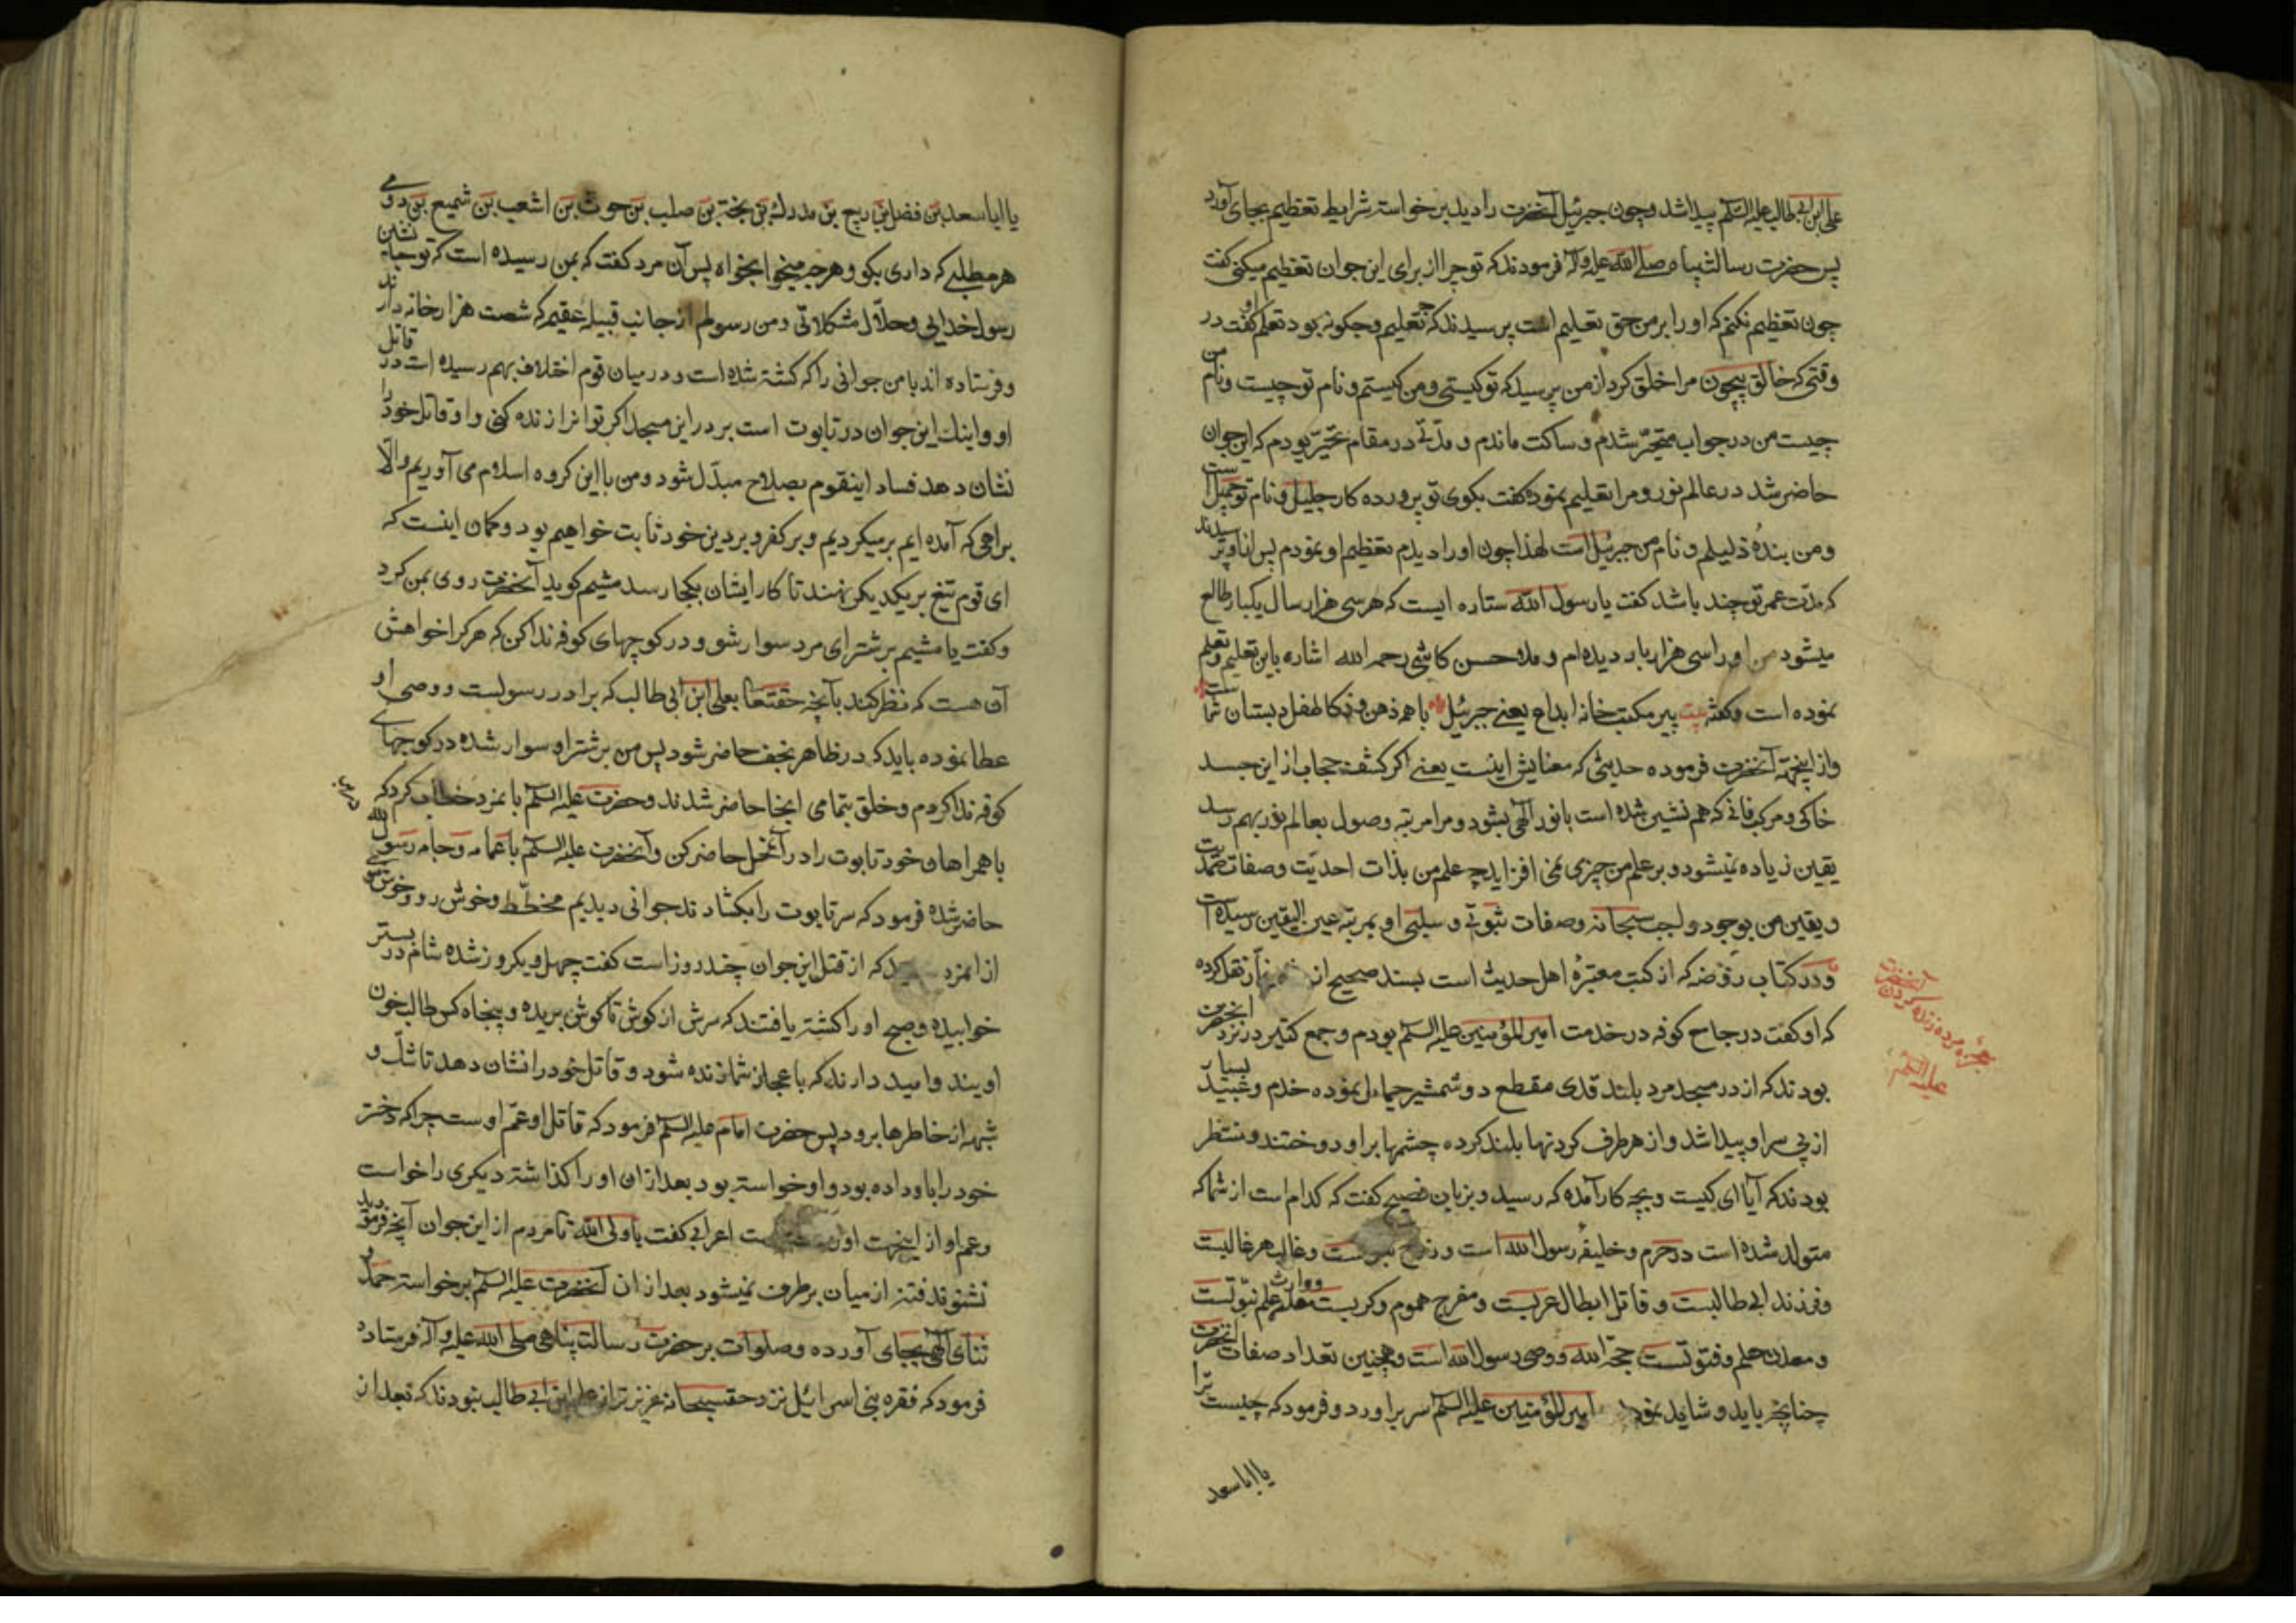 علی ابن ابی طالب علیه السلام پیدا شد و چون جبرئیل آنحضرت را دید برخواسته شرایط تعظیم بجای آورد
پس حضرت رسالت پناه صلی الله علیه و آله فرمودند که تو چرا از برای این جوان تعظیم میکنی گفت
چون تعظیم نکنم که او را بر من حق تعلیم است پرسیدند که چه تعلیم و چگونه بود تعلم او گفت در
وقتی که خالق بیچون مرا خلق کرد از من پرسید که تو کیستی و من کیستم و نام تو چیست و نام من
چیست من در جواب متحیّر شدم و ساکت ماندم و مدّتی در مقام تحیّر بودم که این جوان
حاضر شد در عالم نور و مرا تعلیم نموده گفت بکوی تو پرورده کار جلیل و نام تو جمیل است
و من بندهٔ ذلیلم و نام من جبرئیل است لهذا چون او را دیدم تعظیم او نمودم پس پرسیدند
که مدّت عمر تو چند باشد گفت یا رسول الله ستاره ایست که هر سی هزار سال یکبار طالع
میشود من او را سی هزار بار دیده ام و ملا حسن کاشی رحمه الله اشاره باین تعلیم و تعلم
نموده است و گفته بیت پیر مکتب خانه ابداع یعنی جبرئیل باهمه ذهن و ذکا طفل دبستان شماست
و از اینجهة آنحضرت فرموده حدیثی که معنایش اینست یعنی اگر کشف حجاب از این جسد
خاکی و مرکب فانی که هم نشین شده است با نور الهی بشود و مرا مرتبه وصول بعالم نور بهم رسد
یقین زیاده نمیشود و بر علم من چیزی نمی افزاید چه علم من بذات احدیّت و صفات صمدیت
و یقین من بوجود واجب سبحانه و صفات ثبوتی و سلبی او بمرتبه عین الیقین رسیده است
و در کتاب روضه که از کتب معتبرهٔ اهل حدیث است بسند صحیح از نقل کرده
که او گفت در جامع کوفه در خدمت امیر المؤمنین علیه السلام بودم و جمع کثیر در نزد آنحضرت
بودند که از در مسجد مرد بلند قدی مقطع دو شمشیر حمایل نموده خدم و بسیار
از پی سر او پیدا شد و از هر طرف گردنها بلند کرده چشمها بر او دوختند و منتظر
بودند که آیا ای کیست و بچه کار آمده که رسید و بزبان فصیح گفت که کدام است از شما که
متولد شده است در حرم و خلیفهٔ رسول الله است و و غالب هر غالبست
و فرزند ابی طالبست و قاتل ابطال عربست و مفرج هموم و کربست و وارث علم نبوّتست
و معدن حلم و فتوتست حجة الله و وصی رسول الله است و همچنین تعداد صفات آنحضرت
چنانچه باید و شاید نمود امیر المؤمنین علیه السلام سر برآورد و فرمود که چیست ترا
یا اباسعد
معجزه مرده زنده کردن آنحضرت
علیه السلام
یا اباسعد بن فضل بن ربیع بن مدرکه بن نجیة بن صلب بن حوث بن اشعب بن شمیع بن دومی
هر مطلبی که داری بگو و هر چه میخواهی بخواه پس آن مرد گفت که بمن رسیده است که تو جانشین
رسول خدایی و حلّال مشکلاتی و من رسولم از جانب قبیله عقیمه که شصت هزار خانه دارند
و فرستاده اند با من جوانی را که کشته شده است و در میان قوم اختلاف بهم رسیده است در قاتل
او و اینک این جوان در تابوت است بر در این مسجد اگر تو او را زنده کنی و او قاتل خود را
نشان دهد فساد اینقوم بصلاح مبدّل شود و من با این گروه اسلام می آوریم و الّا
براهی که آمده ایم برمیگردیم و بر کفر و بر دین خود ثابت خواهیم بود و گمان اینست که
ای قوم تیغ بر یکدیگر نهند تا کار ایشان بکجا رسد میثم گوید آنحضرت روی بمن کرد
و گفت یا میثم بر شتر ای مرد سوار شو و در کوچهای کوفه ندا کن که هر کرا خواهش
آن هست که نظر کند بآنچه حقتعالی بعلی ابن ابی طالب که برادر رسولست و وصی او
عطا نموده باید که در ظاهر نجف حاضر شود پس من بر شتر او سوار شده در کوچهای
کوفه ندا کردم و خلق بتمامی انجا حاضر شدند و حضرت علیه السلام با نمرد خطاب کرد که
با همراهان خود تابوت را در آنمحل حاضر کن و آنحضرت علیه السلام با عمامه و جامه رسول الله
حاضر شده فرمود که سر تابوت را بکشادند جوانی دیدیم مخطّط و خوش رو و خوش موی
از انمرد که از قتل این جوان چند روز است گفت چهل و یکروز شده شام در بستر
خوابیده و صبح او را کشته یافتند که سرش از گوش تا گوش بریده و پنجاه کس طالب خون
اویند و امید دارند که باعجاز شما زنده شود و قاتل خود را نشان دهد تا شکّ و
شبهه از خاطرها برود پس حضرت امام علیه السلام فرمود که قاتل او عمّ اوست چرا که دختر
خود را باو داده بود و او خواسته بود بعد از ان او را گذاشته دیگری را خواست
و عم او از اینجهت او را است اعرابی گفت یا ولی الله تا مردم از این جوان آنچه فرمودید
نشنوند فتنه از میان برطرف نمیشود بعد از ان آنحضرت علیه السلام برخواسته حمد و
ثنای الهی بجای آورده و صلوات بر حضرت رسالت پناهی صلی الله علیه و آله فرستاده
فرمود که فقره بنی اسرائیل نزد حقسبحانه عزیز تر از علی ابن ابی طالب نبودند که بعد از